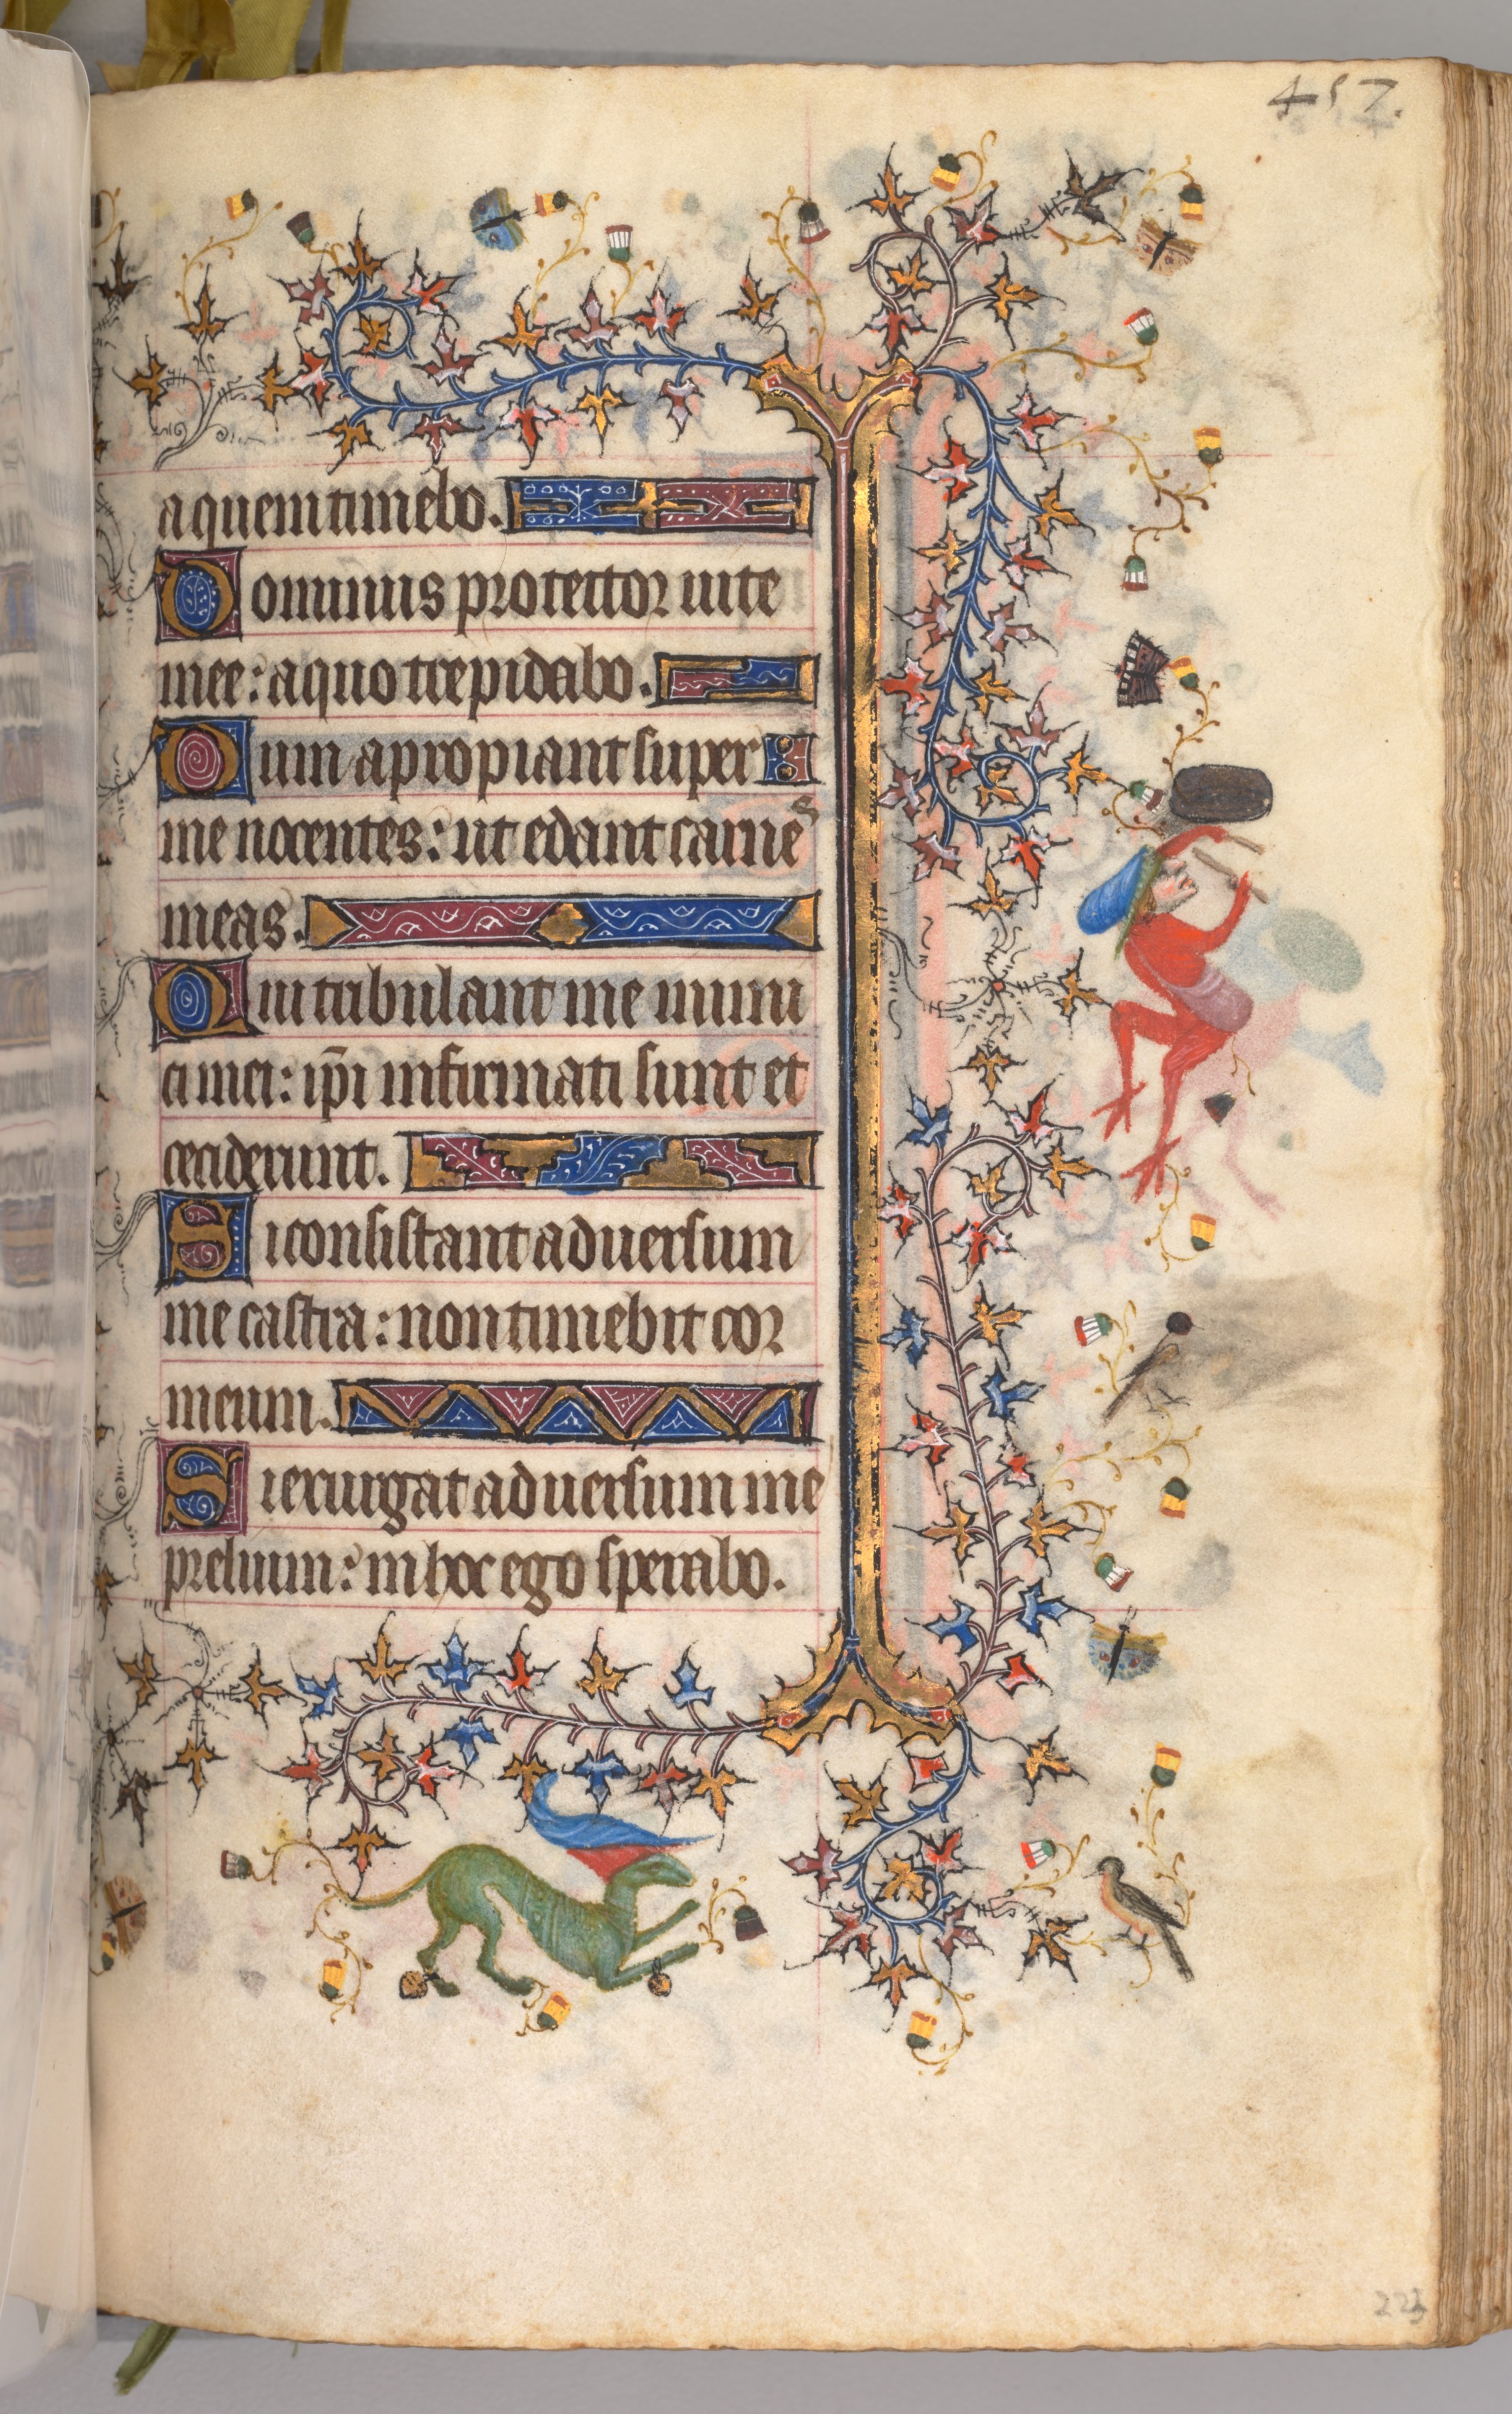 457.
a quem timebo.
Dominus protector uite
mee: a quo trepidabo.
Dum apropiant super
me nocentes: ut edant carnes
meas.
Qui tribulant me inimi
ci mei: ip̄i infirmati sunt et
ceciderunt.
Si consistant aduersum
me castra: non timebit cor
meum.
Si exurgat aduersum me
prelium: in hoc ego sperabo.
223